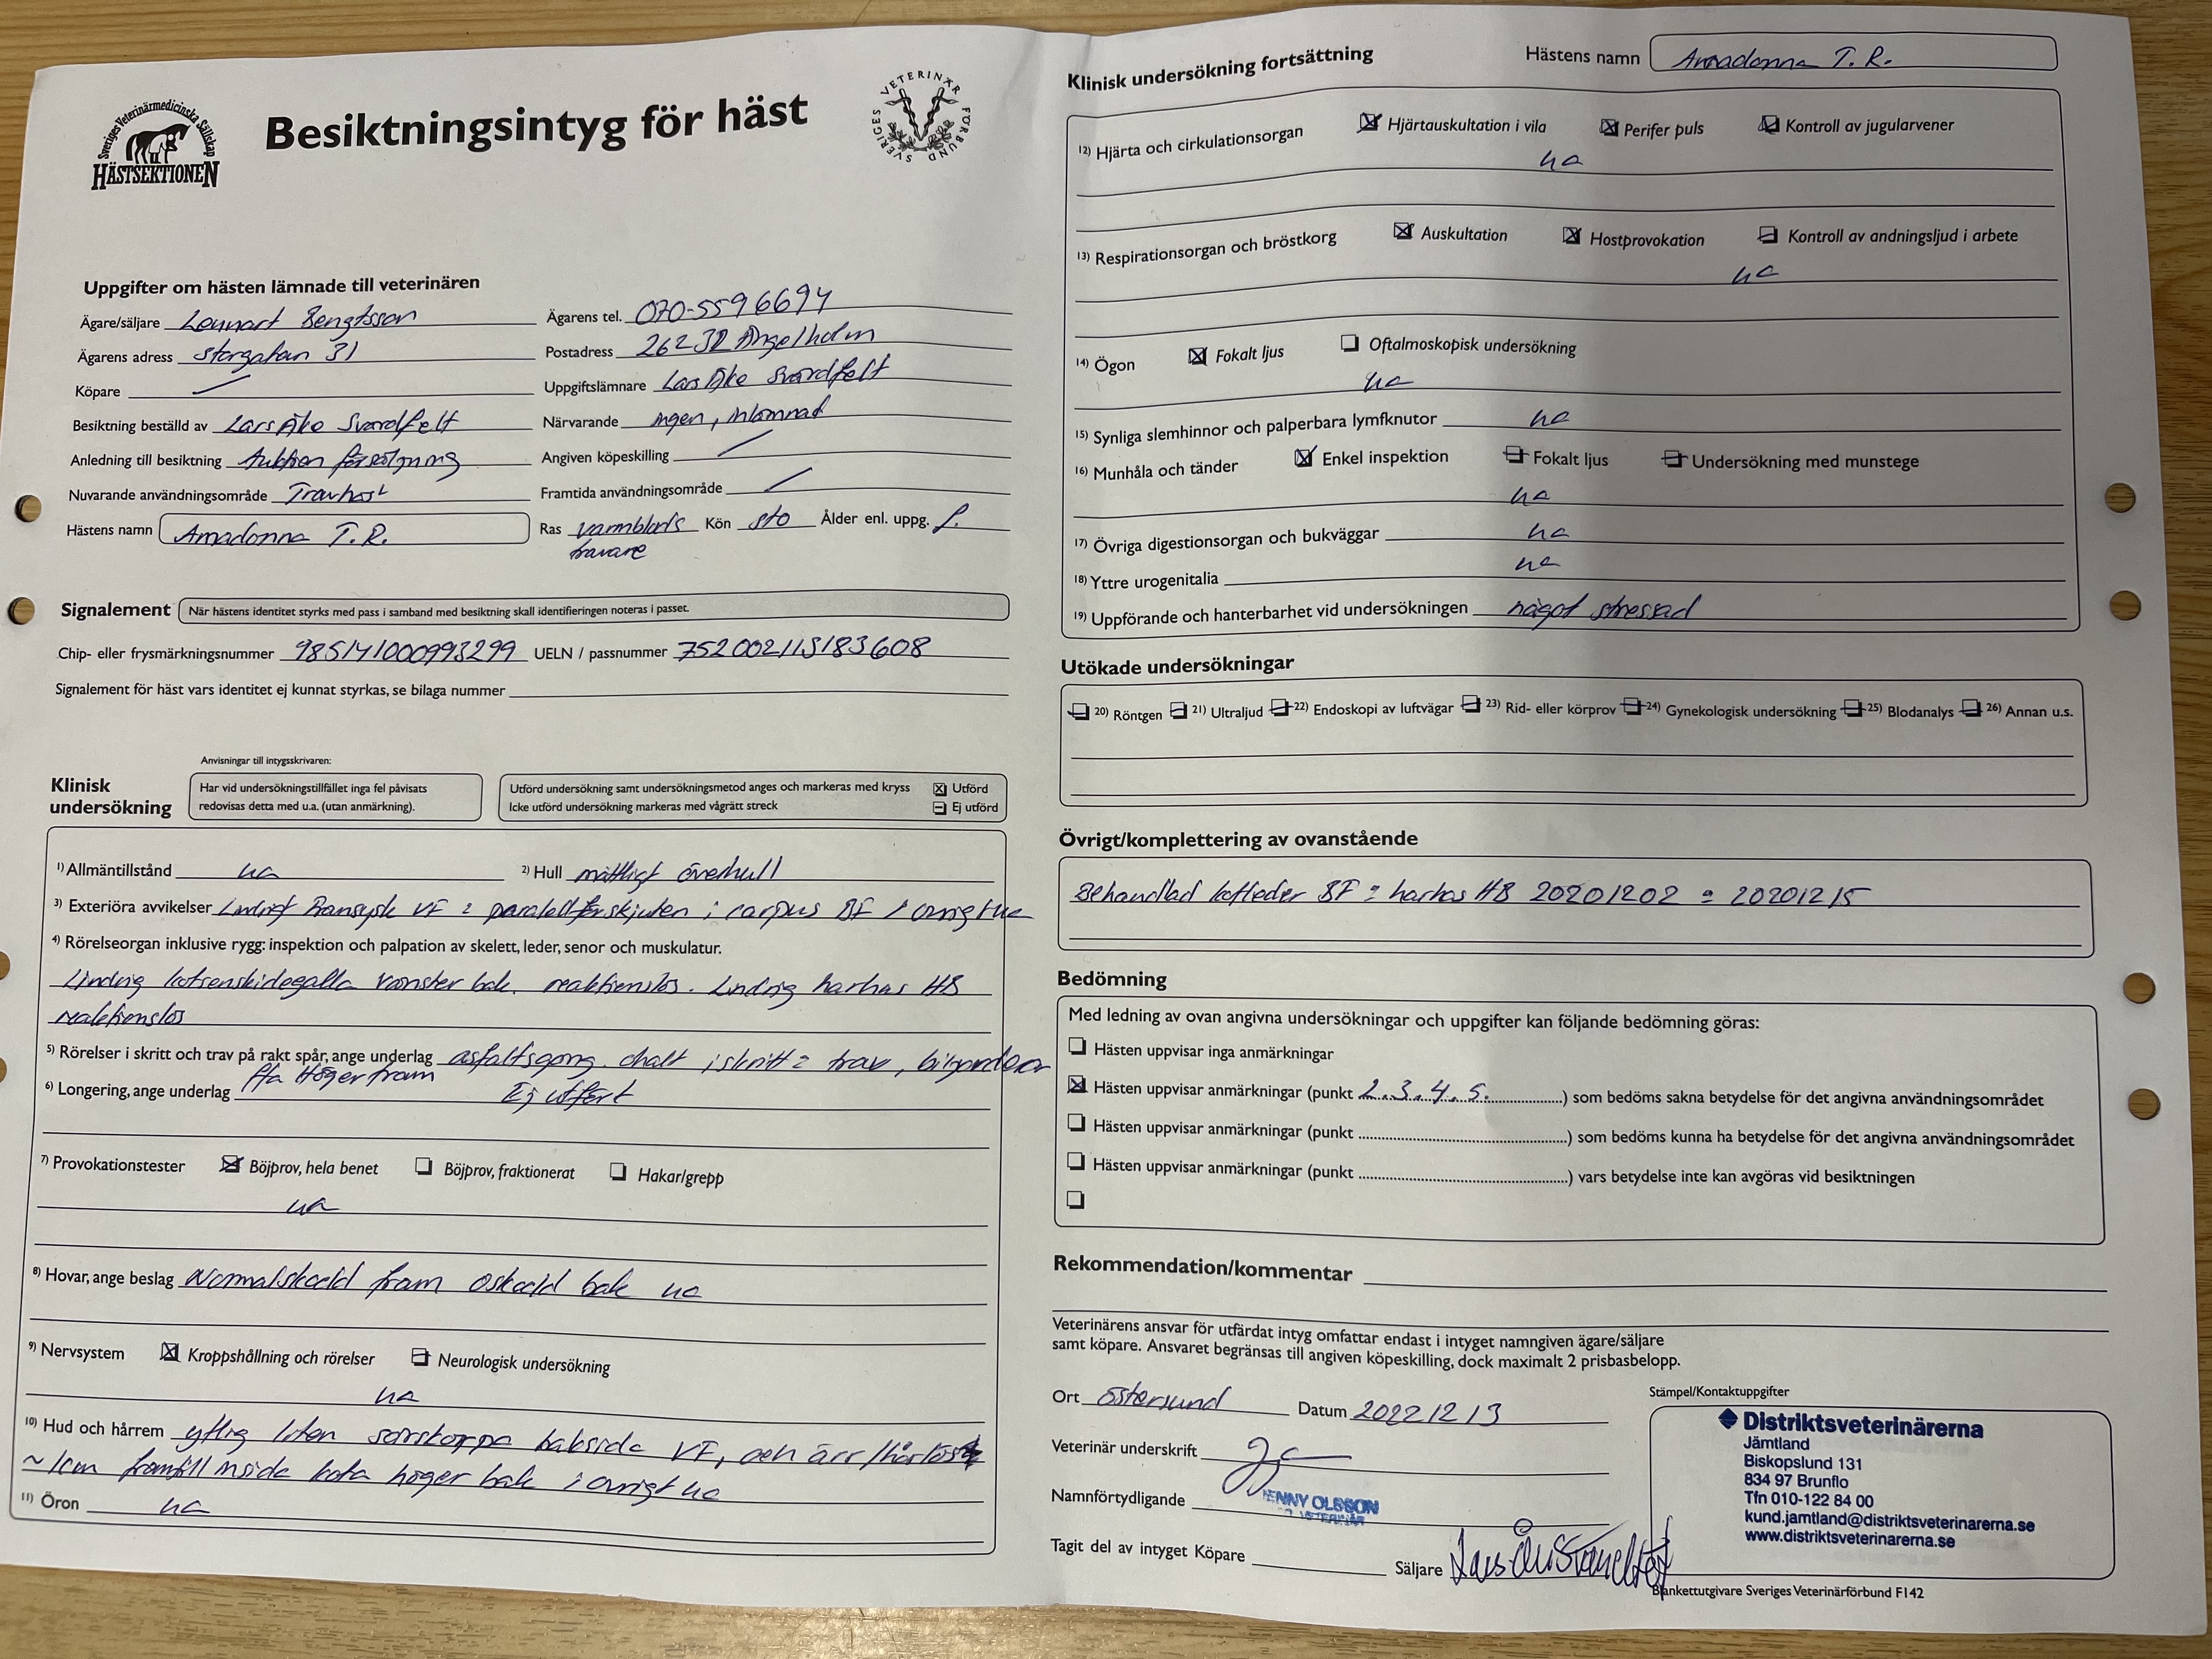 Sveriges Veterinärmedicinska Sällskap
HÄSTSEKTIONEN
Besiktningsintyg för häst
SVERIGES VETERINÄR FÖRBUND
Uppgifter om hästen lämnade till veterinären
Ägare/säljare Lennart Bengtsson Ägarens tel. 070-5596694
Ägarens adress Storgatan 31 Postadress 262 32 Ängelholm
Köpare Uppgiftslämnare Lars Åke Svärdfelt
Besiktning beställd av Lars Åke Svärdfelt Närvarande ingen, inlämnad
Anledning till besiktning Auktion försäljning Angiven köpeskilling
Nuvarande användningsområde Travhäst Framtida användningsområde
Hästens namn Amadonna T.R. Ras varmblods travare Kön sto Ålder enl. uppg.
Signalement När hästens identitet styrks med pass i samband med besiktning skall identifieringen noteras i passet.
Chip- eller frysmärkningsnummer 985141000993299 UELN / passnummer 752002115183608
Signalement för häst vars identitet ej kunnat styrkas, se bilaga nummer
Anvisningar till intygsskrivaren:
Klinisk undersökning
Har vid undersökningstillfället inga fel påvisats redovisas detta med u.a. (utan anmärkning).
Utförd undersökning samt undersökningsmetod anges och markeras med kryss Utförd
Icke utförd undersökning markeras med vågrätt streck Ej utförd
1) Allmäntillstånd ua 2) Hull måttligt överhull
3) Exteriöra avvikelser Lindrigt fransysk VF & parallellförskjuten i carpus BF i övrigt ua
4) Rörelseorgan inklusive rygg: inspektion och palpation av skelett, leder, senor och muskulatur.
Lindrig kotsenskidegalla vänster bak. reaktionslös. Lindrig harhas HB
reaktionslös
5) Rörelser i skritt och trav på rakt spår, ange underlag asfaltsgång. ohalt i skritt & trav, biljarderar
ffa Höger fram
6) Longering, ange underlag Ej utfört
7) Provokationstester Böjprov, hela benet Böjprov, fraktionerat Hakar/grepp
ua
8) Hovar, ange beslag Normalskodd fram oskodd bak ua
9) Nervsystem Kroppshållning och rörelser Neurologisk undersökning
ua
10) Hud och hårrem ytlig liten sårskorpa baksida VF, och ärr/hårlöst
~1cm framtill insida kota höger bak i övrigt ua
11) Öron ua
Klinisk undersökning fortsättning Hästens namn Amadonna T.R.
12) Hjärta och cirkulationsorgan Hjärtauskultation i vila Perifer puls Kontroll av jugularvener
ua
13) Respirationsorgan och bröstkorg Auskultation Hostprovokation Kontroll av andningsljud i arbete
ua
14) Ögon Fokalt ljus Oftalmoskopisk undersökning
ua
15) Synliga slemhinnor och palperbara lymfknutor ua
16) Munhåla och tänder Enkel inspektion Fokalt ljus Undersökning med munstege
ua
17) Övriga digestionsorgan och bukväggar ua
18) Yttre urogenitalia ua
19) Uppförande och hanterbarhet vid undersökningen något stressad
Utökade undersökningar
20) Röntgen 21) Ultraljud 22) Endoskopi av luftvägar 23) Rid- eller körprov 24) Gynekologisk undersökning 25) Blodanalys 26) Annan u.s.
Övrigt/komplettering av ovanstående
Behandlad kotleder BF & harhas HB 20201202 & 20201215
Bedömning
Med ledning av ovan angivna undersökningar och uppgifter kan följande bedömning göras:
Hästen uppvisar inga anmärkningar
Hästen uppvisar anmärkningar (punkt 2.3.4.5.) som bedöms sakna betydelse för det angivna användningsområdet
Hästen uppvisar anmärkningar (punkt ) som bedöms kunna ha betydelse för det angivna användningsområdet
Hästen uppvisar anmärkningar (punkt ) vars betydelse inte kan avgöras vid besiktningen
Rekommendation/kommentar
Veterinärens ansvar för utfärdat intyg omfattar endast i intyget namngiven ägare/säljare
samt köpare. Ansvaret begränsas till angiven köpeskilling, dock maximalt 2 prisbasbelopp.
Ort Östersund Datum 20221213
Veterinär underskrift
Namnförtydligande ENNY OLSSON
VETERINÄR
Tagit del av intyget Köpare Säljare Lars Åke Svärdfelt
Stämpel/Kontaktuppgifter
Distriktsveterinärerna
Jämtland
Biskopslund 131
834 97 Brunflo
Tfn 010-122 84 00
kund.jamtland@distriktsveterinarerna.se
www.distriktsveterinarerna.se
Blankettutgivare Sveriges Veterinärförbund F142